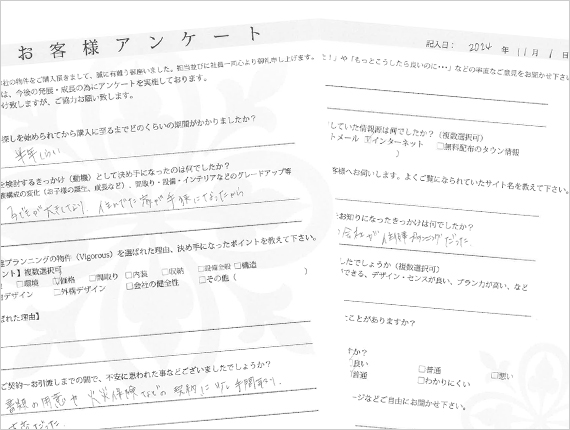 お客様アンケート
社の物件をご購入頂きまして、誠に有難う御座いました。担当並びに社員一同心より御礼申し上げます。
は、今後の発展・成長の為にアンケートを実施しております。
け致しますが、ご協力お願い致します。
探しを始められてから購入に至るまでどのくらいの期間がかかりましたか?
半年くらい
を検討するきっかけ(動機)として決め手になったのは何でしたか?
族構成の変化(お子様の誕生、成長など)、間取り・設備・インテリアなどのグレードアップ等
子どもが大きくなり、住んでた家が手狭になったから
プランニングの物件(Vigorous)を選ばれた理由、決め手になったポイントを教えて下さい。
ント】複数選択可
□環境 ☑価格 □間取り □内装 □収納 □設備全般 □構造
デザイン □外構デザイン □会社の健全性 □その他( )
ばれた理由】
ご契約〜お引渡しまでの間で、不安に思われた事などございましたでしょうか?
書類の用意や火災保険などの契約に
記入日: 2024 年 11 月 1 日
!」や「もっとこうしたら良いのに・・・」などの率直なご意見をお聞かせ下さい
していた情報源は何でしたか?(複数選択可)
トメール ☑インターネット □無料配布のタウン情報
)
客様へお伺いします。よくご覧になられていたサイト名を教えて下さい。
お知りになったきっかけは何でしたか?
会社が住建プランニングだった
したでしょうか(複数選択可)
できる、デザイン・センスが良い、プラン力が高い、など
ことがありますか?
か?
良い □普通 □悪い
普通 □わかりにくい
ージなどご自由にお聞かせ下さい。